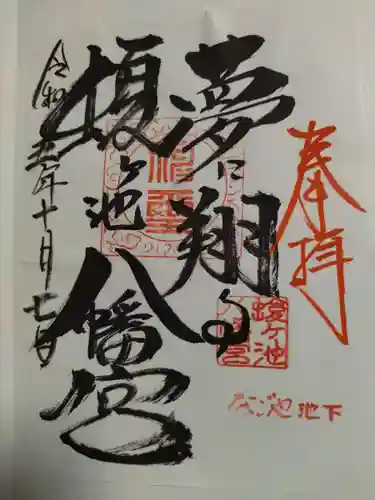 奉拝
夢に翔る
蝮ヶ池八幡宮
令和五年十月七日
蝮ヶ池
八幡宮
なごや池下